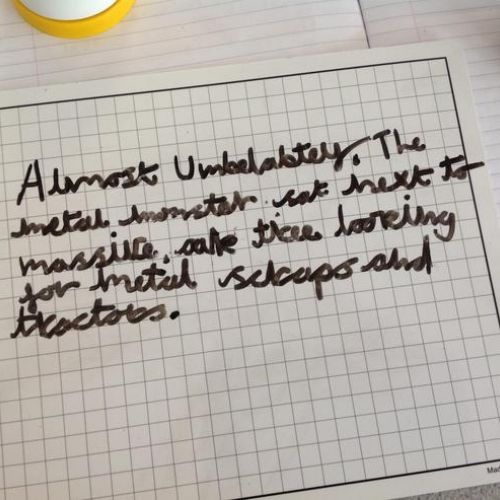 Almost Umbelabtely. The
metal monster sat next to
massive oak tree looking
for metal scraps and
tractobs.